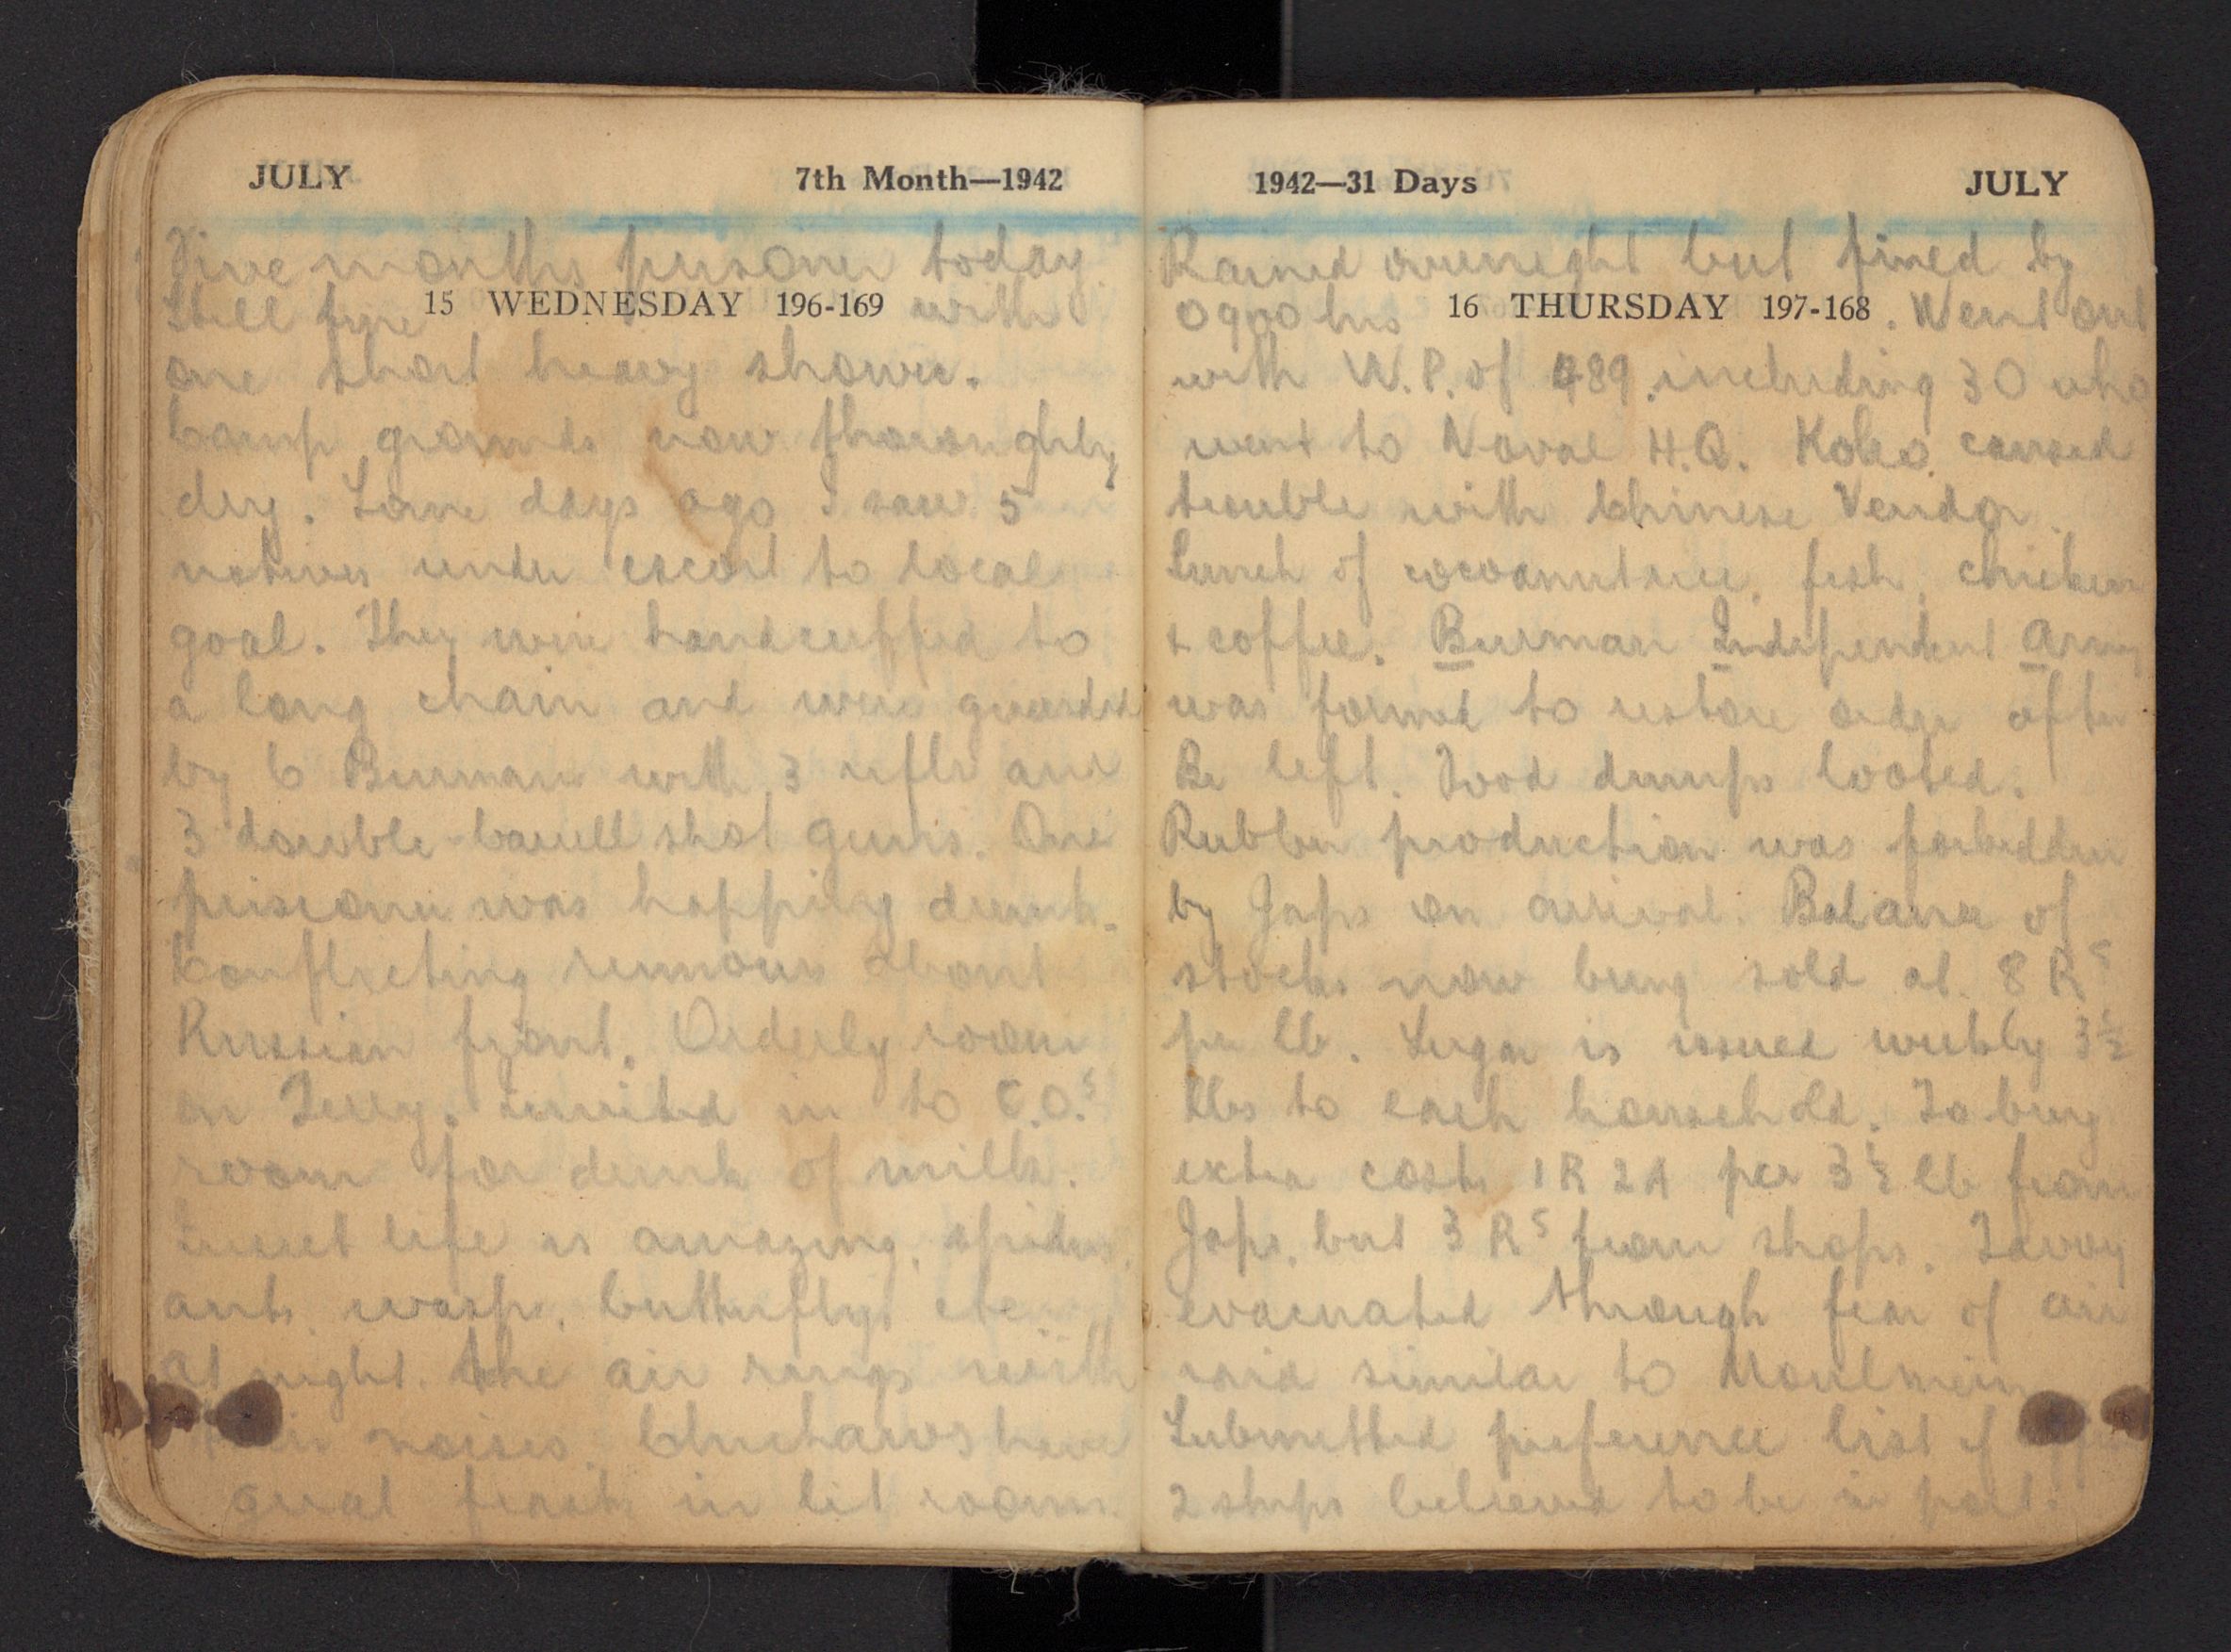 JULY 7th Month—1942
Five months prisoner today.
Still fine 15 WEDNESDAY 196-169 with
one short heavy shower.
Camp grounds now thoroughly
dry. Some days ago I saw 5
natives under escort to local
goal. They were handcuffed to
a long chain and were guarded
by 6 Burman with 3 rifls and
3 double-barell shot guns. One
prisioner was happily drunk.
Conflicting rumours about
Russian front. Orderly room
on Terry. invited in to C.O.s
room for drink of milk.
Insect life is amazing. spiders,
ants, wasps, butterflys etc.
At night the air rings with
their noises. Chuchaws have
great feasts in lit rooms.
1942—31 Days JULY
Rained overnight but fined by
0900 hrs 16 THURSDAY 197-168. Went out
with W.P. of 489. including 30 who
went to Naval H.Q. Kobo. caused
trouble with Chinese Vendor.
Lunch of cocoanut rice, fish, chicken
& coffee. Burman Independent Army
was formed to restore order after
Br left. Food dumps looted.
Rubber production was forbidden
by Japs on arrival. Balance of
stocks now being sold at 8 Rs
per lb. Sugar is issued weekly 3½
lbs to each household. To buy
extra costs 1R 2A per 3½ lb from
Japs. but 3 Rs from shops. Tavoy
evacuated through fear of air
raid similar to Moulmein
Submitted preference list of
2 ships believed to be in port.